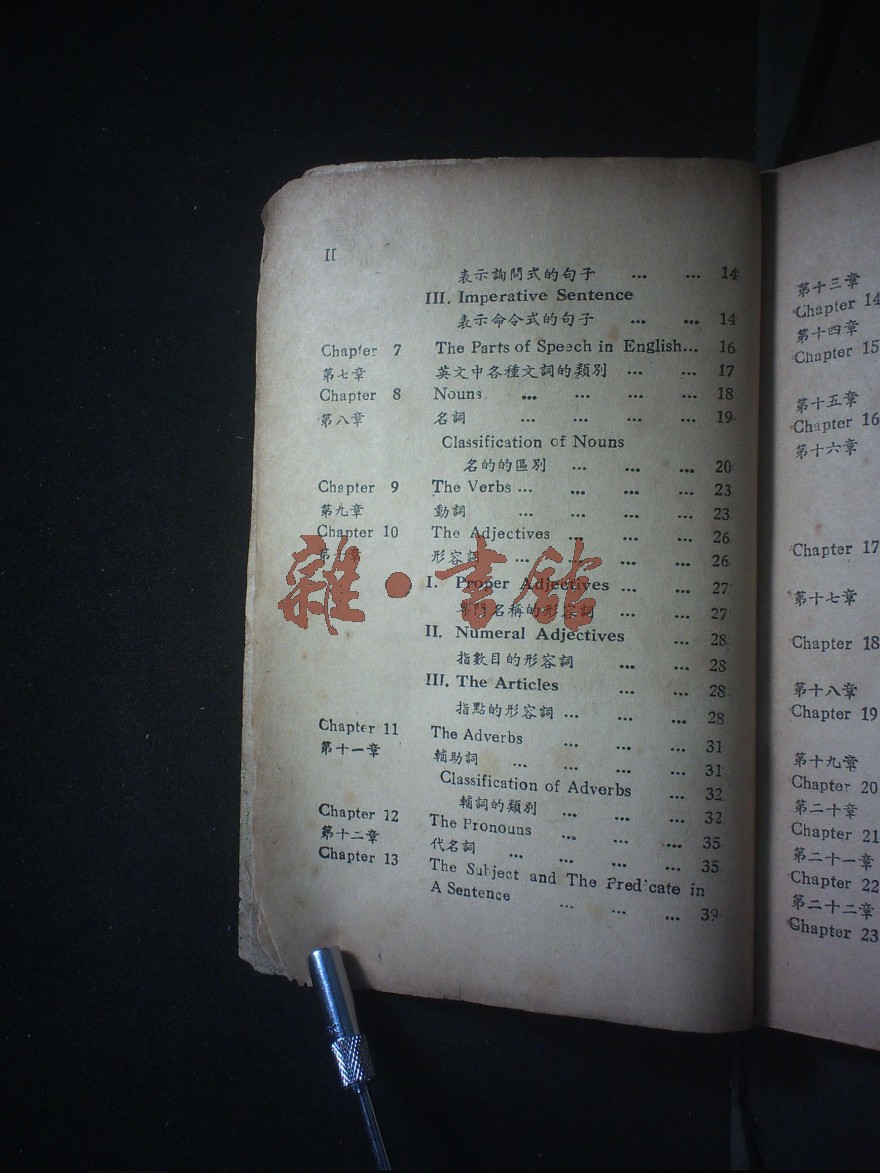 II
表示詢問式的句子 ... ... 14
III. Imperative Sentence
表示命令式的句子 ... ... 14
Chapter 7 The Parts of Speech in English... 16
第七章 英文中各種文詞的類別 ... ... 17
Chapter 8 Nouns ... ... ... ... 18
第八章 名詞 ... ... ... ... 19
Classification of Nouns
名的的區別 ... ... ... 20
Chapter 9 The Verbs ... ... ... ... 23
第九章 動詞 ... ... ... ... 23
Chapter 10 The Adjectives ... ... ... 26
第十章 形容詞 ... ... ... ... 26
I. Proper Adjectives ... ... 27
專門名稱的形容詞 ... ... 27
II. Numeral Adjectives ... 28
指數目的形容詞 ... ... 28
III. The Articles ... ... 28
指點的形容詞 ... ... ... 28
Chapter 11 The Adverbs ... ... ... 31
第十一章 輔助詞 ... ... ... ... 31
Classification of Adverbs ... 32
輔詞的類別 ... ... ... 32
Chapter 12 The Pronouns ... ... ... 35
第十二章 代名詞 ... ... ... ... 35
Chapter 13 The Subject and The Predicate in
A Sentence ... ... ... 39
雜·書館
第十三章
Chapter 14
第十四章
Chapter 15
第十五章
Chapter 16
第十六章
Chapter 17
第十七章
Chapter 18
第十八章
Chapter 19
第十九章
Chapter 20
第二十章
Chapter 21
第二十一章
Chapter 22
第二十二章
Chapter 23